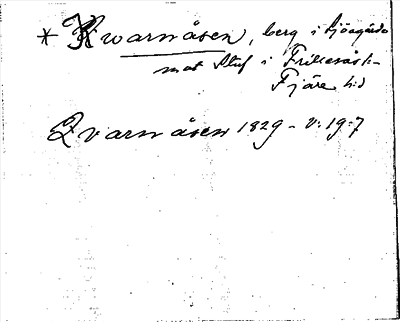 * Kwarnåsen, berg i Sjögårda
mot Stuf i Frillesås s:n
Fjäre hd
Qvarnåsen 1829 - V: 19:7